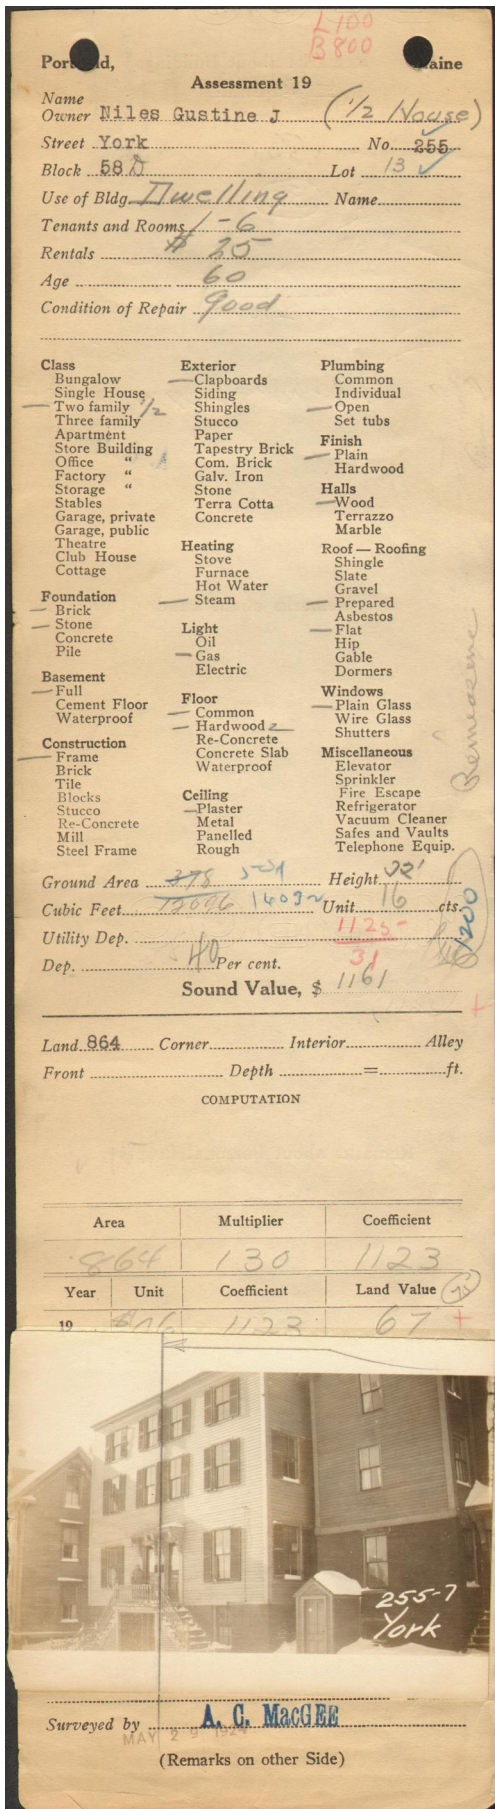 L 100
B 800
Portland, Maine
Assessment 19
Name
Owner Niles Gustine J (1/2 House)
Street York No. 255
Block 58 D Lot 13
Use of Bldg. Dwelling Name
Tenants and Rooms 1-6
Rentals $ 25
Age 60
Condition of Repair Good
Class
Bungalow
Single House
Two family 1/2
Three family
Apartment
Store Building
Office "
Factory "
Storage "
Stables
Garage, private
Garage, public
Theatre
Club House
Cottage
Foundation
Brick
Stone
Concrete
Pile
Basement
Full
Cement Floor
Waterproof
Construction
Frame
Brick
Tile
Blocks
Stucco
Re-Concrete
Mill
Steel Frame
Exterior
Clapboards
Siding
Shingles
Stucco
Paper
Tapestry Brick
Com. Brick
Galv. Iron
Stone
Terra Cotta
Concrete
Heating
Stove
Furnace
Hot Water
Steam
Light
Oil
Gas
Electric
Floor
Common
Hardwood 2
Re-Concrete
Concrete Slab
Waterproof
Ceiling
Plaster
Metal
Panelled
Rough
Plumbing
Common
Individual
Open
Set tubs
Finish
Plain
Hardwood
Halls
Wood
Terrazzo
Marble
Roof — Roofing
Shingle
Slate
Gravel
Prepared
Asbestos
Flat
Hip
Gable
Dormers
Windows
Plain Glass
Wire Glass
Shutters
Miscellaneous
Elevator
Sprinkler
Fire Escape
Refrigerator
Vacuum Cleaner
Safes and Vaults
Telephone Equip.
Ground Area 378 Height 32'
Cubic Feet 12096 Unit 16 cts.
1200
Utility Dep. 1125
31
Dep. 40 Per cent.
Sound Value, $ 1161
Land 864 Corner Interior Alley
Front Depth = ft.
COMPUTATION
Area Multiplier Coefficient
864 130 1123
Year Unit Coefficient Land Value
19 1123 67 +
255-7
York
Surveyed by A. C. MacGEE
MAY 29 1924
(Remarks on other Side)